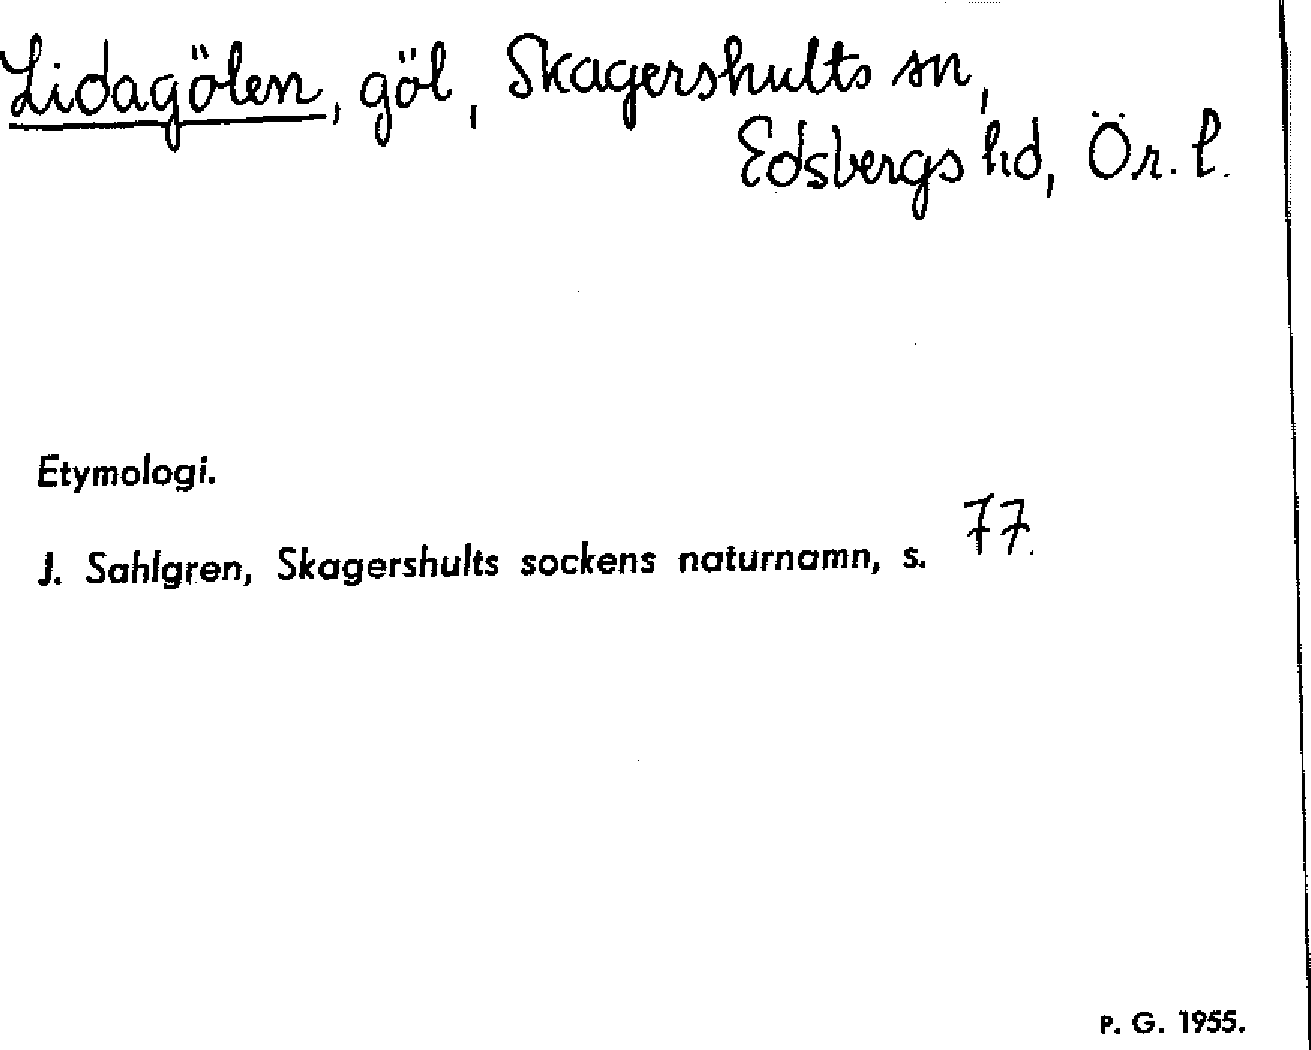 Lidagölen, göl, Skagershults sn,
Edsbergs hd, Ör. l.
Etymologi.
J. Sahlgren, Skagershults sockens naturnamn, s. 77.
P. G. 1955.